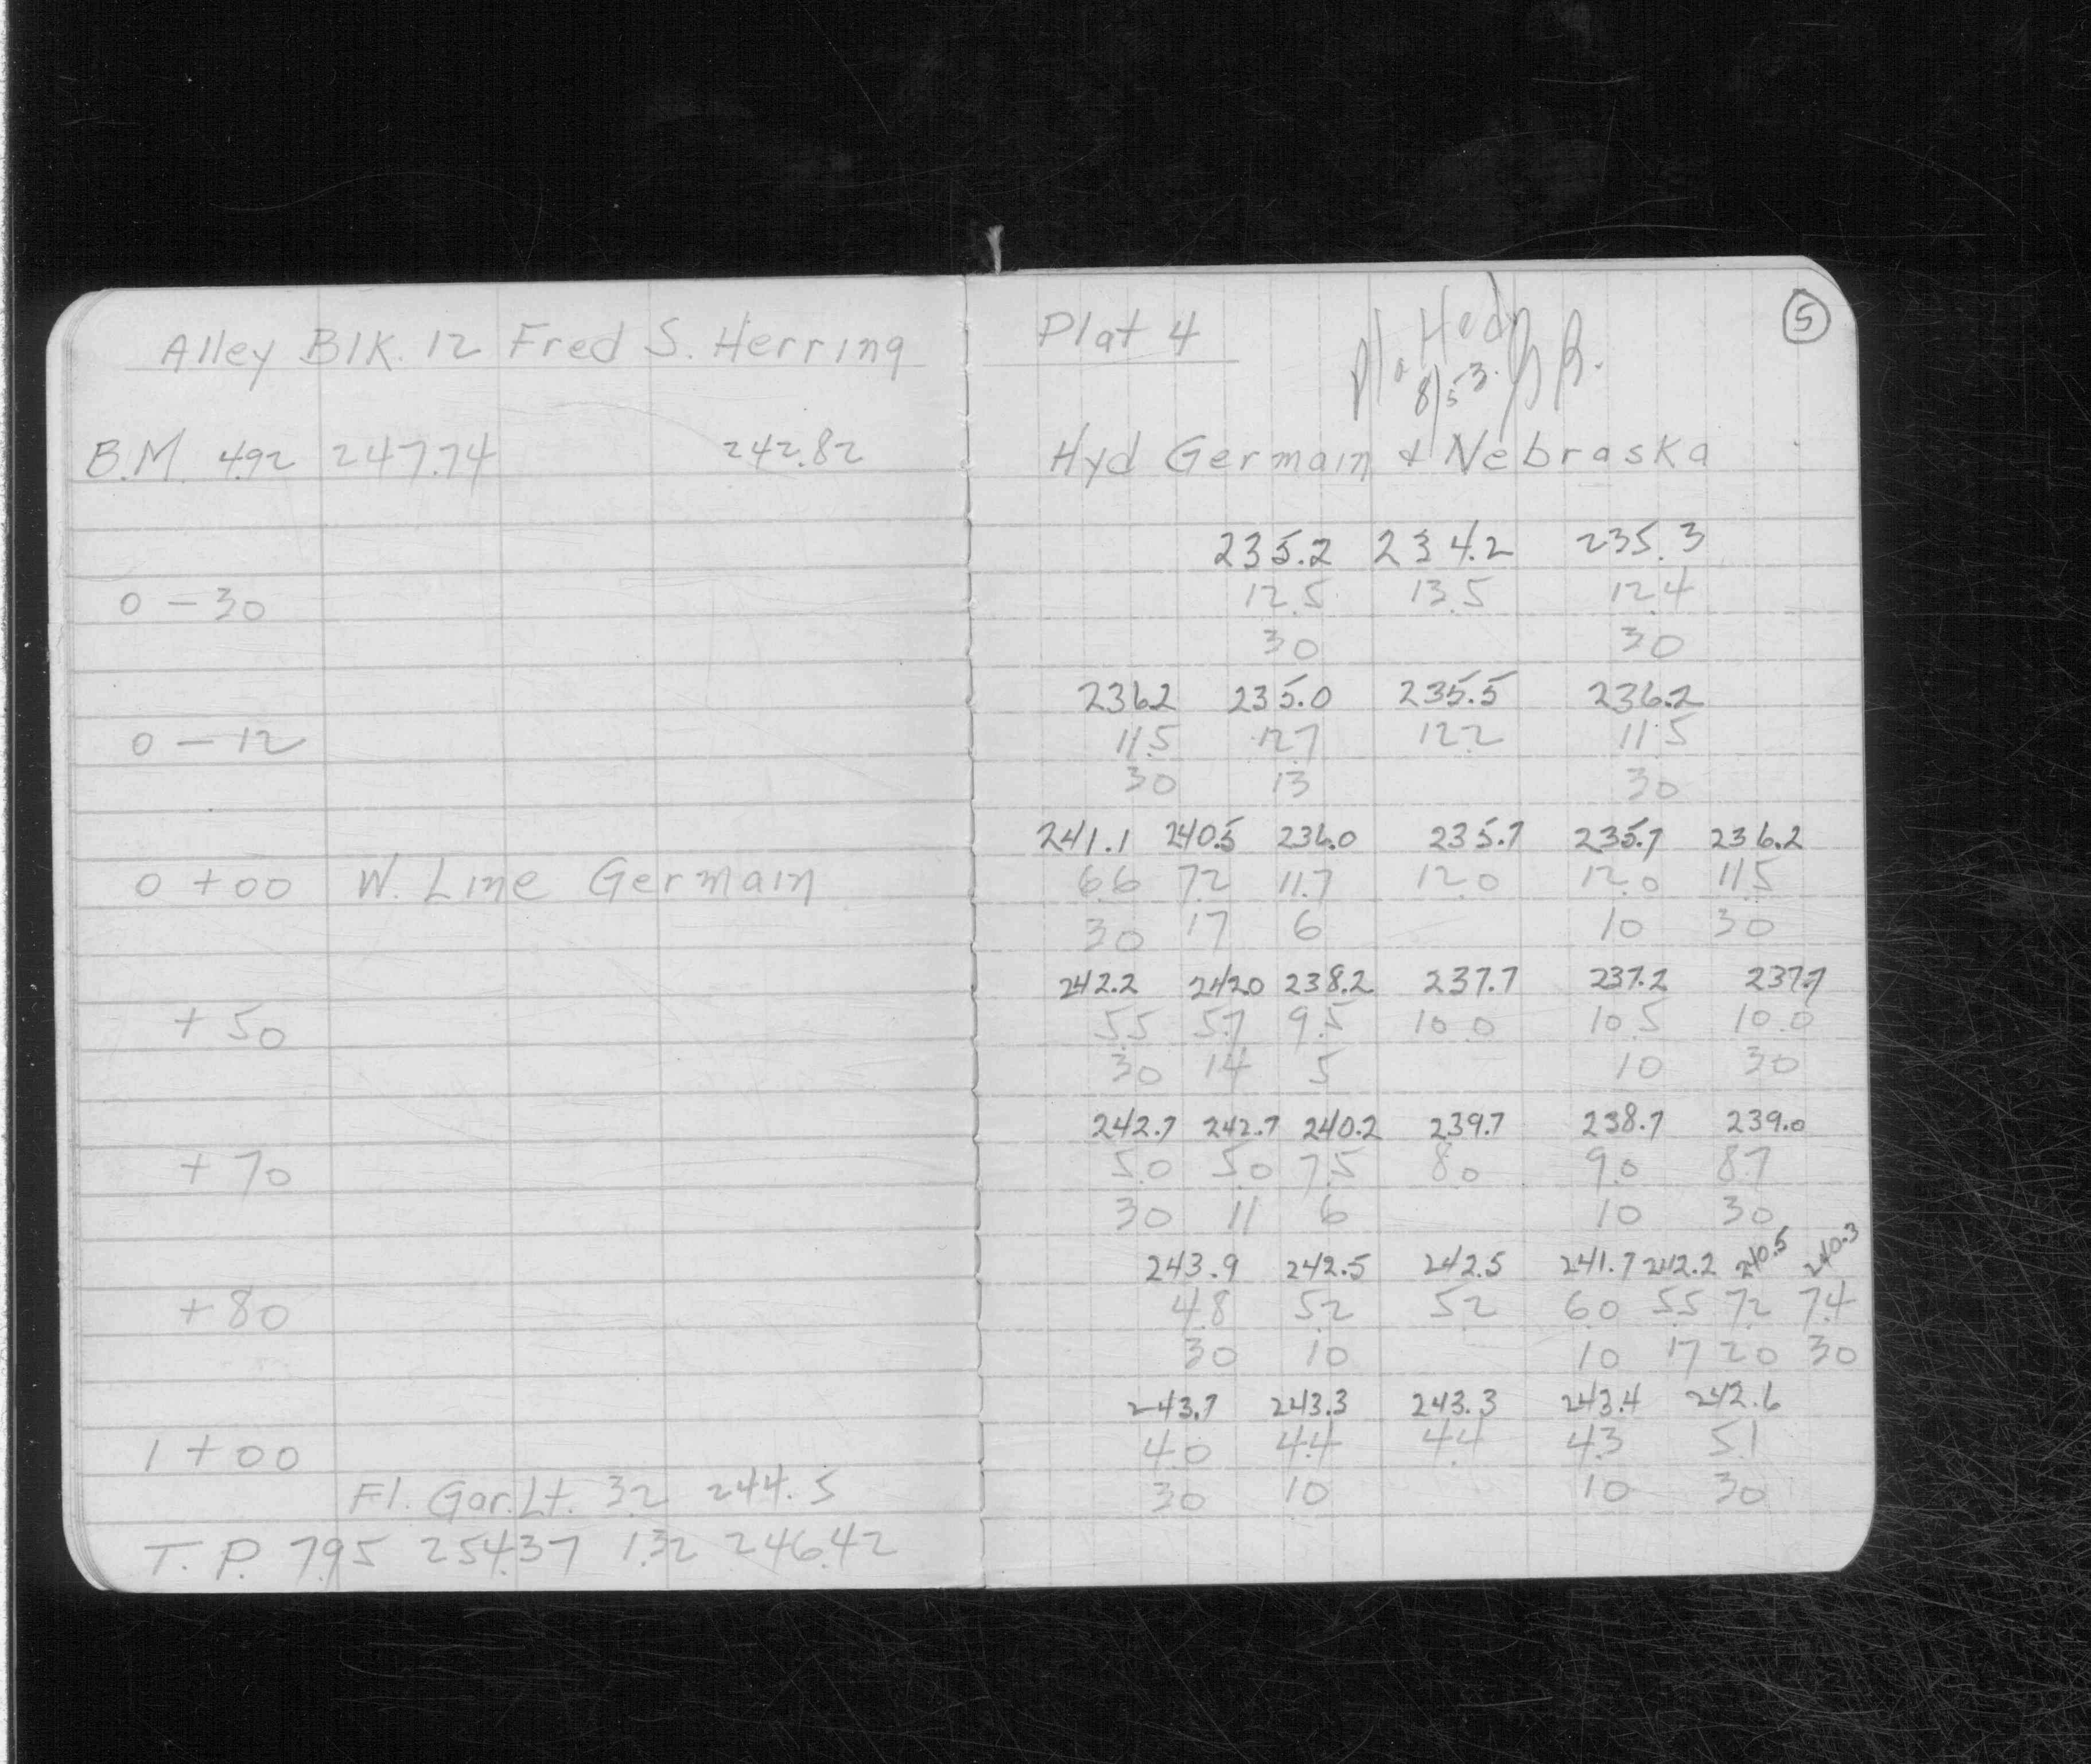 Alley Blk. 12 Fred S. Herring
B.M. 4.92 247.74 242.82
0 - 30
0 - 12
0 + 00 W. Line Germain
+ 50
+ 70
+ 80
1 + 00
Fl. Gar. Lt. 3.2 244.5
T. P. 7.95 254.37 1.32 246.42
Plat 4
5
Hyd Germain & Nebraska
235.2 234.2 235.3
12.5 13.5 12.4
30 30
236.2 235.0 235.5 236.2
11.5 12.7 12.2 11.5
30 13 30
241.1 240.5 236.0 235.7 235.7 236.2
6.6 7.2 11.7 12.0 12.0 11.5
30 17 6 10 30
242.2 242.0 238.2 237.7 237.2 237.7
5.5 5.7 9.5 10.0 10.5 10.0
30 14 5 10 30
242.7 242.7 240.2 239.7 238.7 239.0
5.0 5.0 7.5 8.0 9.0 8.7
30 11 6 10 30
243.9 242.5 242.5 241.7 242.2 240.5 240.3
4.8 5.2 5.2 6.0 5.5 7.2 7.4
30 10 10 17 20 30
243.7 243.3 243.3 243.4 242.6
4.0 4.4 4.4 4.3 5.1
30 10 10 30